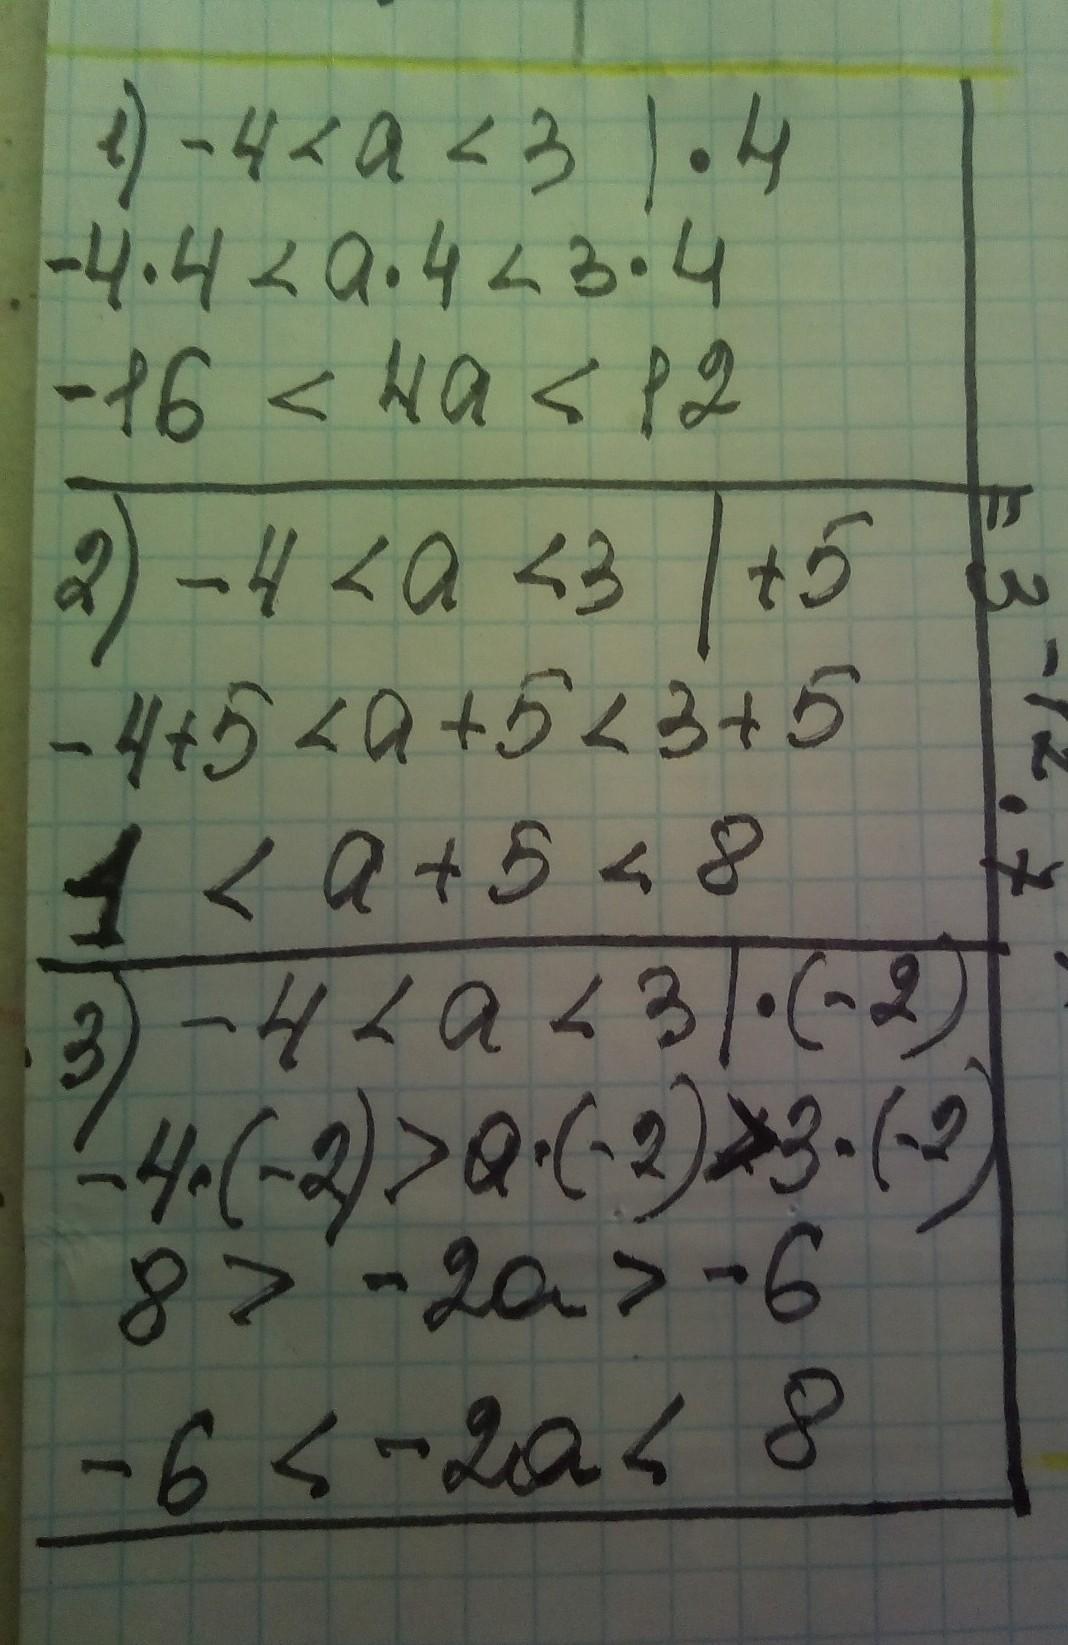 1) -4 < a < 3 | · 4
-4·4 < a·4 < 3·4
-16 < 4a < 12
2) -4 < a < 3 | +5
-4+5 < a+5 < 3+5
1 < a + 5 < 8
3) -4 < a < 3 | ·(-2)
-4·(-2) > a·(-2) > 3·(-2)
8 > -2a > -6
-6 < -2a < 8